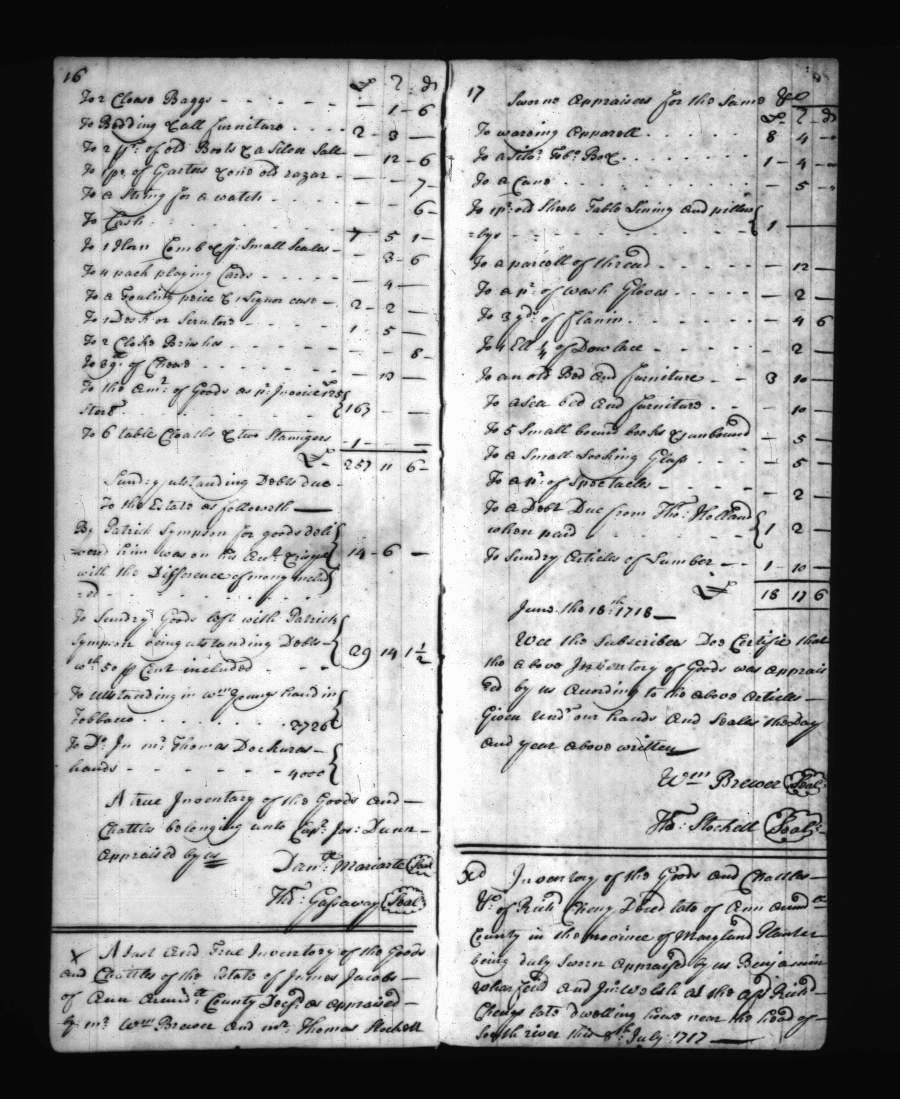 16
£ s d
To 2 Close Baggs - - - - — 1 - 6
To Bedding & all furniture . . . . 2 - 3 —
To 2 pr. of old Boots & a Silver Salt — 12 - 6
To 1 pr. of Garters & one old razar - — 7 -
To a String for a watch . - - - 6 -
To Cash . . . . . 7 5 1 -
To 1 Horn Comb & pr. Small Scales - — 3 - 6
To 4 pack playing Cards - - - - — 4 —
To a Fouling peice & 1 Liquor case - 2 - 2 —
To 1 Desk or Scrutore - - - - 1 - 5 —
To 2 Cloths Brushes . . . . . 8 -
To of - - - - — 13 —
To the amt. of Goods as pr. Invoice
Store . . . . . . 163 — —
To 6 table Cloaths & two 1 - —
£ - 257 11 6 -
Sundry utstanding Debts due
To the Estate as followeth —
By Patrick Sympson for goods deli
=vered him was on his Acct. 14 - 6 —
with the Difference of mony includ
=ed - . . . . . . .
To Sundry Goods left with Patrick
Sympson being utstanding Debts 29 14 1 1/2
wth. 50 p Cent included - - -
To utstanding in Wm. Youngs hand in
Tobbacco . . . . . . . 2726
To Do. In mr. Thomas Dockuras -
hands - - - - - - - 4000
A true Inventory of the Goods and -
Chattles belonging unto Capt. Jos: Dunn -
appraised by us
Danll. Mariarte Seal
Tho: Gassaway Seal
X A Just and True Inventory of the Goods
and Chattles of the Estate of James Jacobs -
of Ann Arundll. County Decsd. as appraised -
by mr. Wm Brewer and mr. Thomas Stockett
17
Sworne Appraisers for the Same &c
£ s d
To waring Apparell . . . . . . 8 4 -
To a Silvr. Tobo. Box . . . . . . 1 - 4 -
To a Cane . . . . . . . . — 5 -
To 1 pr. old Sheets Table Lining and pillow
=bys - - - - - - - 1 ——
To a parcell of thread . . . . . — 12 —
To a pr. of wash Gloves . . . . . — 2 —
To 3 yds. of flanin . - - - - — 4 6
To 4 Ell 1/4 of Dowlace - - - - — 2 —
To an old Bed and furniture - - 3 10 —
To a sea bed and furniture . - — 10 —
To 5 Small bound books & unbound — 5 —
To a Small Looking Glass . . . . — 5 —
To a pr. of Spectacles - - - - — 2 —
To a Debt Due from Tho: Holland
when paid . . . . . . 1 2 -
To Sundry Articles of Lumber - - 1 - 10 -
£ 18 17 6
June the 18th: 1718 —
Wee the Subscribers Doe Certifie that
the above Inventory of Goods was apprais
ed by us Acording to the above articles -
Given undr. our hands and Seales the Day
and year above written
Wm Brewer Seal
Tho: Stockett Seal
Inventory of the Goods and Chattles -
&c. of Richd. Cheny Decsd late of Ann Arundll.
County in the province of Maryland Planter
being duly Sworn appraised by us Benjamin
Wharfeild and Jno. Welsh at the asd Richd.
Chenys late dwelling house near the head of -
South river this 8th: July: 1717 —